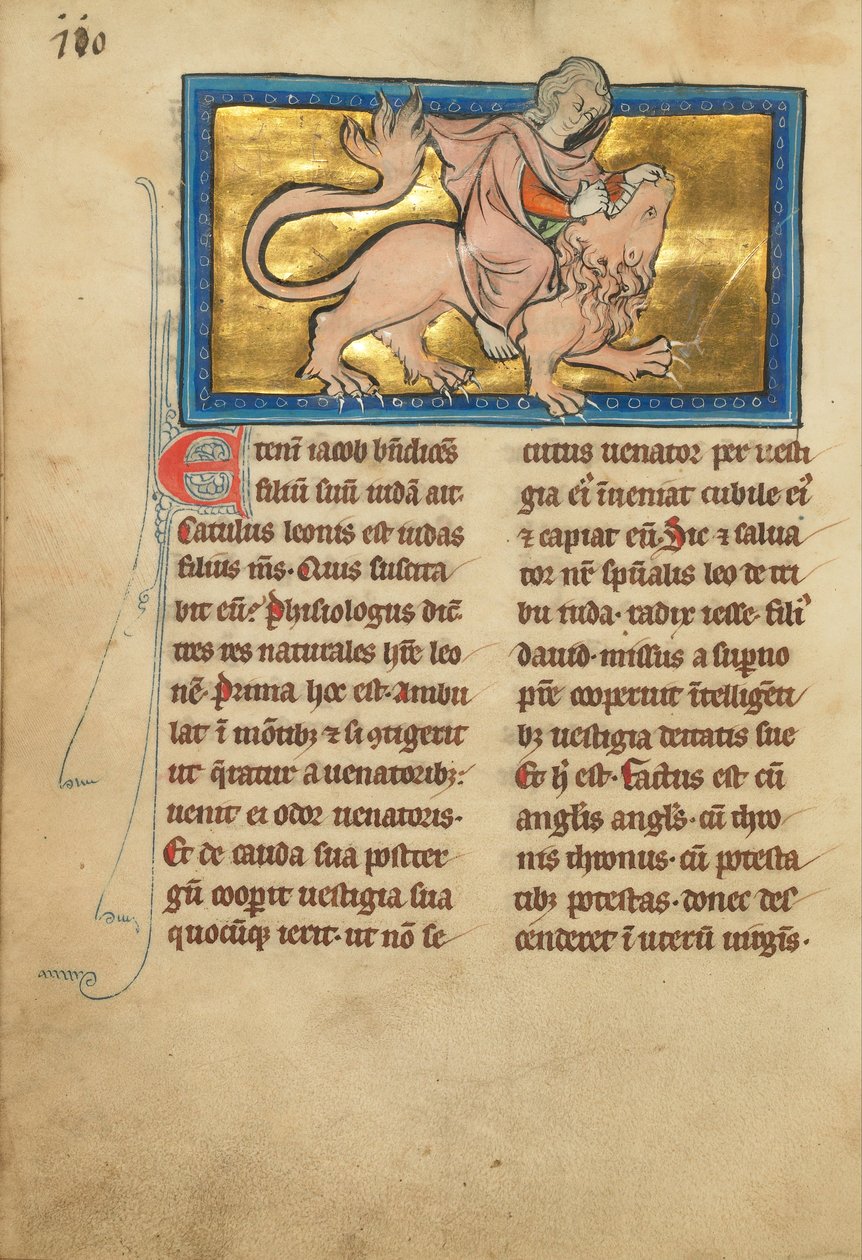 110
Eteni᷑ iacob bn̄dicēs
filiū suū iudā ait·
Catulus leonis est iudas
filius ms̄· Quis suscita
bit eū? Phisiologus dic̄
tres res naturales hr̄e leo
nē· Prima hec est· Ambu
lat ī mōtibꝫ ⁊ si ꝯtigerit
ut q̄ratur a uenatoribꝫ:
uenit ei odor uenatoris·
Et de cauda sua postter
gū coop̄it uestigia sua
quocūqꝫ ierit· ut nō se
cutus uenator per uesti
gia eiꝰ īueniat cubile eiꝰ
⁊ capiat eū· Sic ⁊ salua
tor nr̄ sp̄ualis leo de tri
bu iuda· radix iesse· filiꝰ
dauid· missus a sup̄no
pr̄e cooperuit ītelligēti
bꝫ uestigia deitatis sue
Et h᷑ est· Factus est cū
angl̄is angl̄s· cū thro
nis thronus· cū potesta
tibꝫ potestas· donec des
cenderet ī uterū uirgīs·